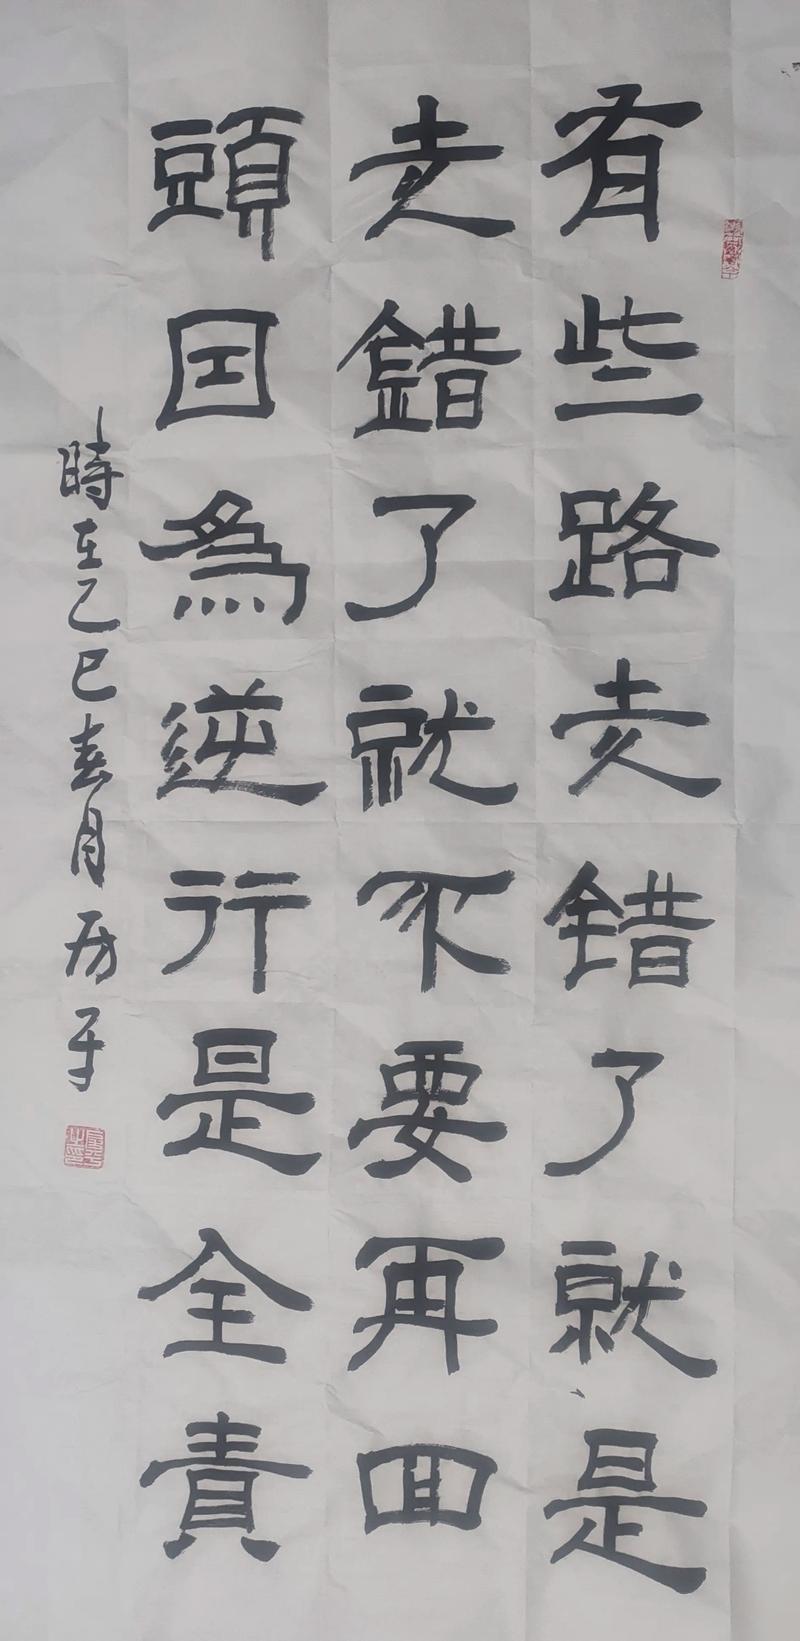 有些路走错了就是
走錯了就不要再回
頭因為逆行是全責
時在乙巳春月房平